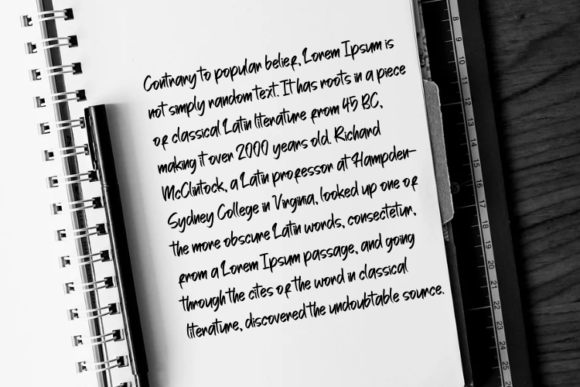 Contrary to popular belief, Lorem Ipsum is
not simply random text. It has roots in a piece
of classical Latin literature from 45 BC,
making it over 2000 years old. Richard
McClintock, a Latin professor at Hampden-
Sydney College in Virginia, looked up one of
the more obscure Latin words, consectetur,
from a Lorem Ipsum passage, and going
through the cites of the word in classical
literature, discovered the undoubtable source.